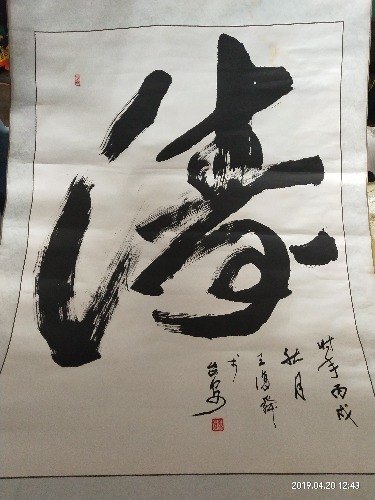 涛
时年丙戌
秋月
王
台安
2019.04.20 12:43